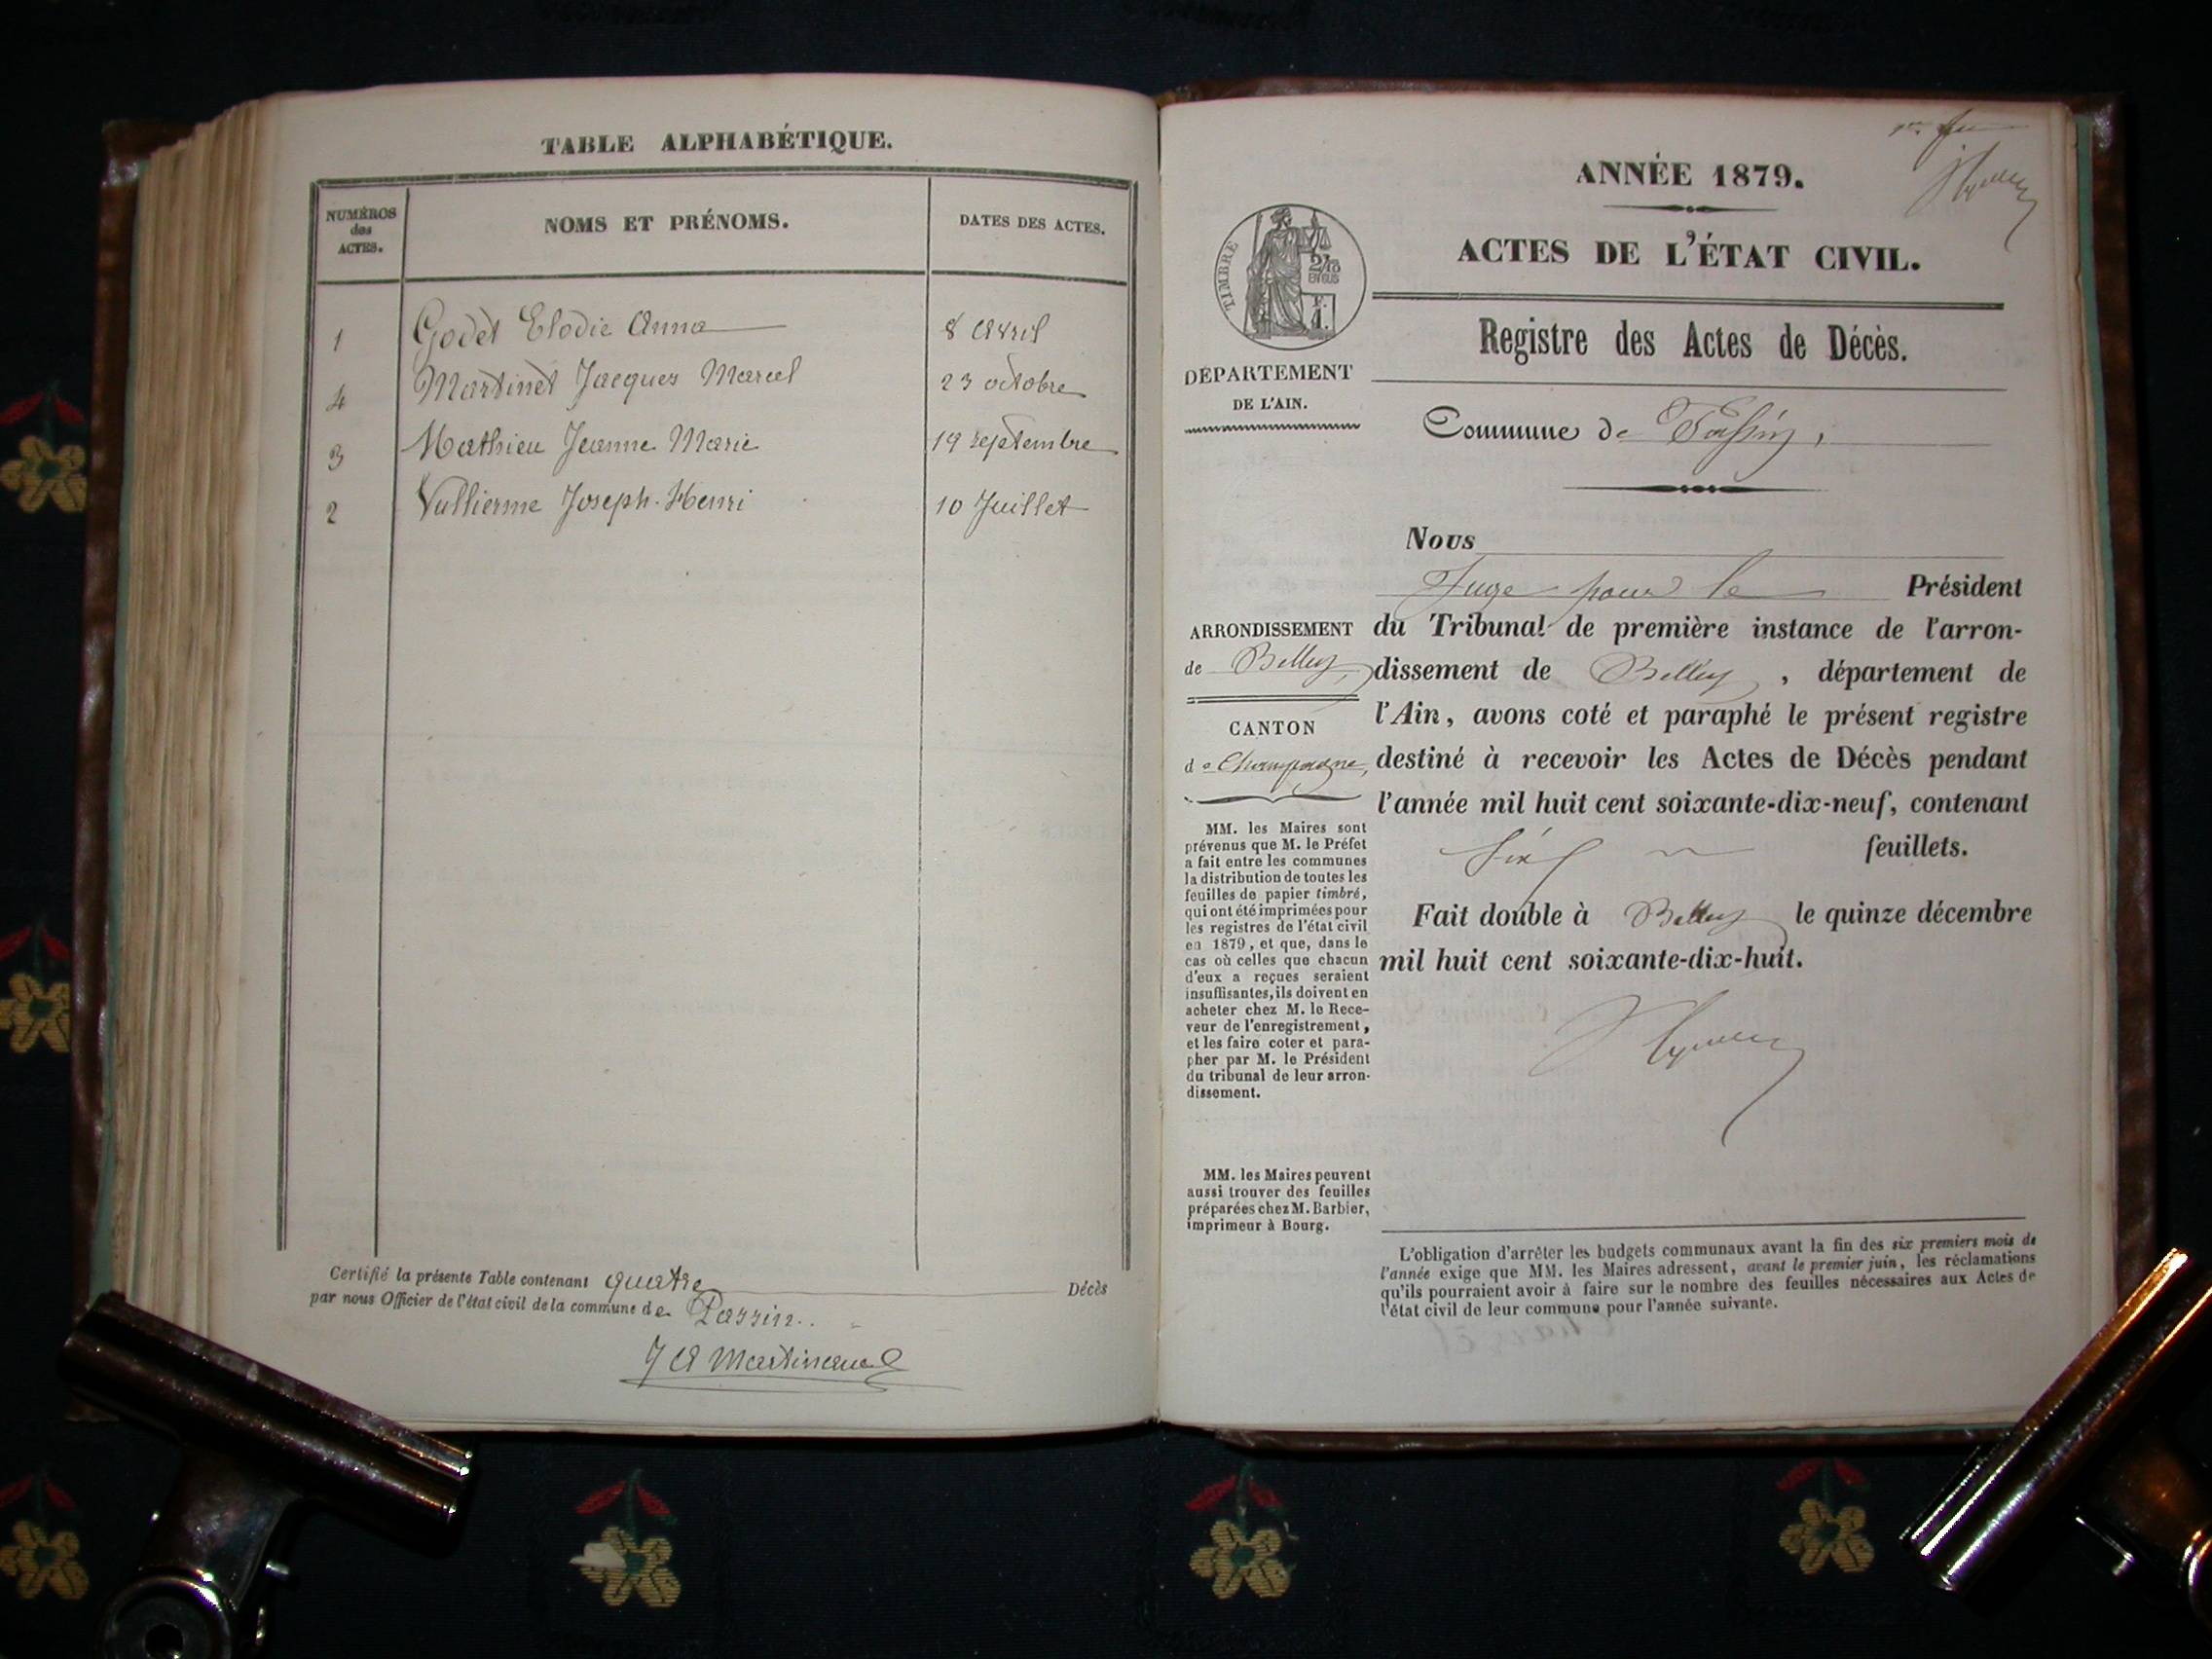 TABLE ALPHABÉTIQUE.
NUMÉROS
des
ACTES.
NOMS ET PRÉNOMS.
DATES DES ACTES.
1 Godet Elodie Anna 8 Avril
4 Martinet Jacques Marcel 23 octobre
3 Mathieu Jeanne Marie 19 septembre
2 Vullierme Joseph-Henri 10 Juillet
Certifié la présente Table contenant quatre Décès
par nous Officier de l'état civil de la commune de Passin.
J A Martinand
ANNÉE 1879.
ACTES DE L'ÉTAT CIVIL.
TIMBRE
Registre des Actes de Décès.
DÉPARTEMENT
DE L'AIN.
Commune de Passin,
Nous
Juge pour le Président
du Tribunal de première instance de l'arron-
dissement de Belley, département de
l'Ain, avons coté et paraphé le présent registre
destiné à recevoir les Actes de Décès pendant
l'année mil huit cent soixante-dix-neuf, contenant
six feuillets.
Fait double à Belley le quinze décembre
mil huit cent soixante-dix-huit.
ARRONDISSEMENT
de Belley,
CANTON
de Champagne,
MM. les Maires sont
prévenus que M. le Préfet
a fait entre les communes
la distribution de toutes les
feuilles de papier timbré,
qui ont été imprimées pour
les registres de l'état civil
en 1879, et que, dans le
cas où celles que chacun
d'eux a reçues seraient
insuffisantes, ils doivent en
acheter chez M. le Rece-
veur de l'enregistrement,
et les faire coter et para-
pher par M. le Président
du tribunal de leur arron-
dissement.
MM. les Maires peuvent
aussi trouver des feuilles
préparées chez M. Barbier,
imprimeur à Bourg.
L'obligation d'arrêter les budgets communaux avant la fin des six premiers mois de
l'année exige que MM. les Maires adressent, avant le premier juin, les réclamations
qu'ils pourraient avoir à faire sur le nombre des feuilles nécessaires aux Actes de
l'état civil de leur commune pour l'année suivante.